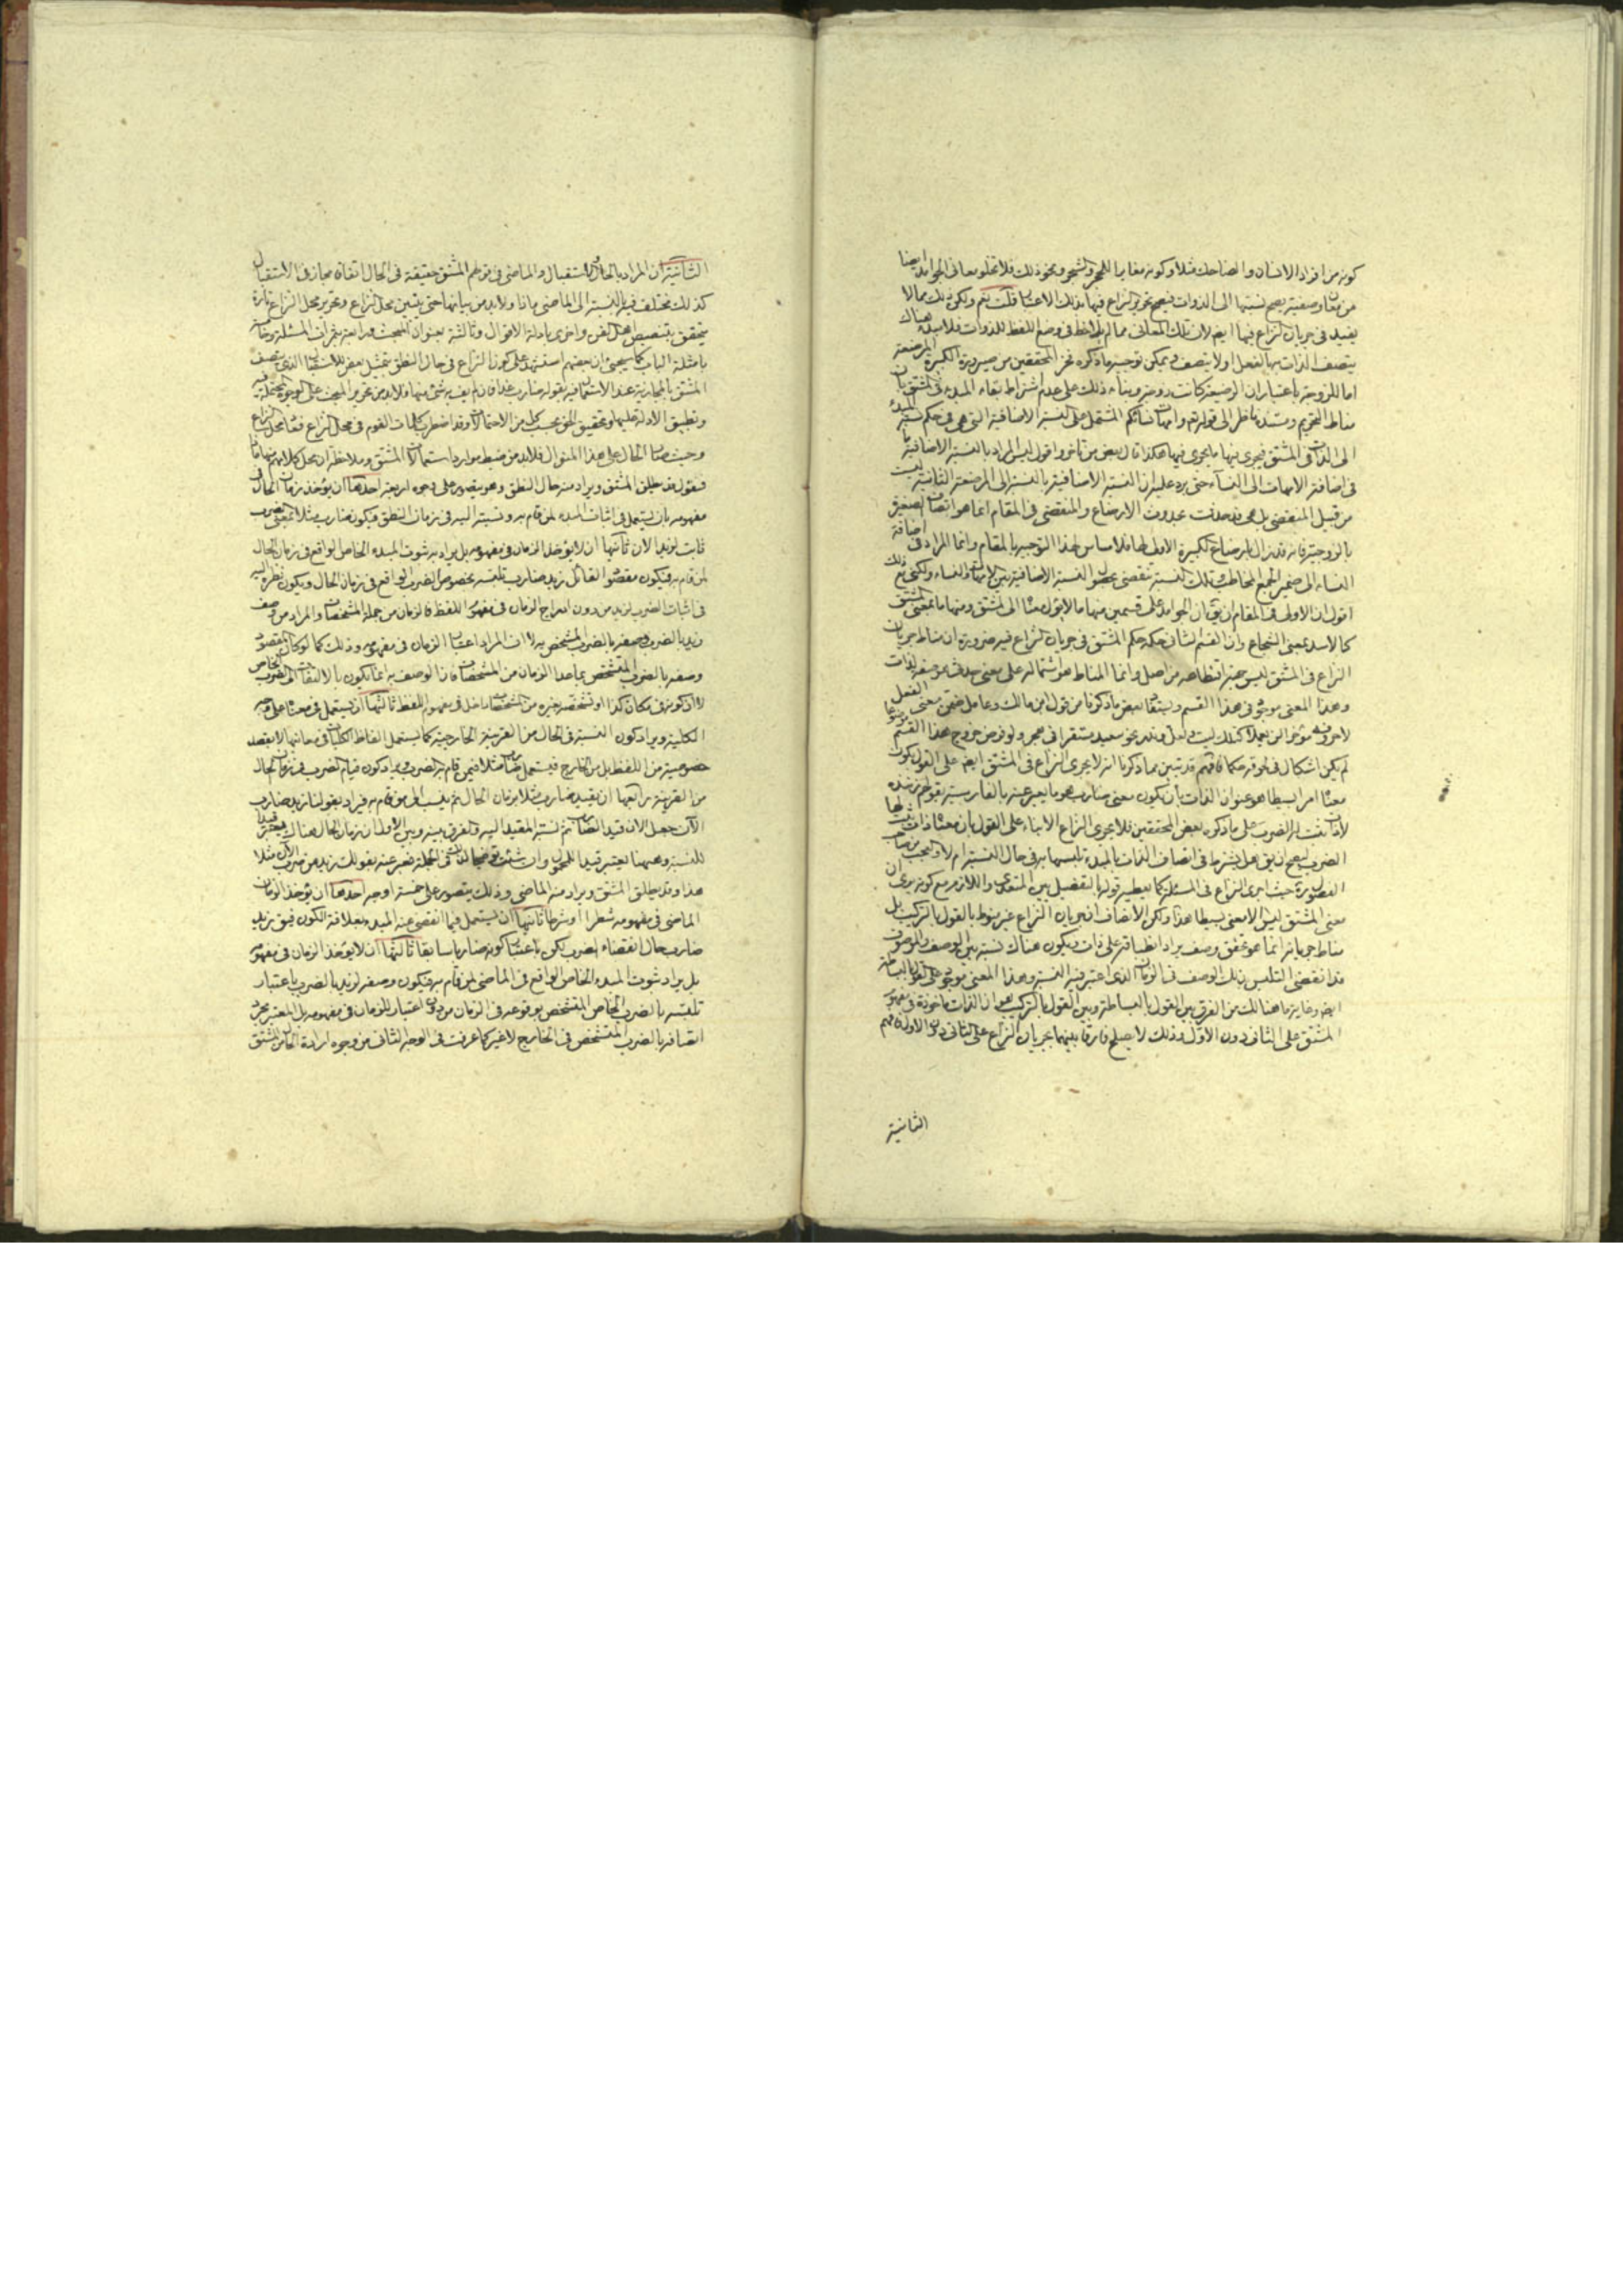 كونه من افراد الانسان والضاحك مثلا وكونه مغايرا للحجر والشجر ونحو ذلك فلا تخلو معاني الجوامد ايضا
من معان وصفية يصح نسبتها الى الذوات فيصح تحرير النزاع فيها بذلك الاعتبار قلت نعم ولكن ذلك مما لا
يفيد في جريان النزاع فيها ايضا لان تلك المعاني مما لم يلاحظ في وضع اللفظ للذوات فلا سبيل هناك
يتصف الذات بها بالفعل او لا يتصف ويمكن توجيه ما ذكره فخر المحققين من صيرورة الكبيرة المرضعة
اما للزوجة باعتبار ان الرضيعة كانت زوجة وبناء ذلك على عدم اشتراط بقاء المبدء في المشتق بان
مناط التحريم ومستنده ناظر الى قوله تعم وامهات نسائكم المشتمل على النسبة الاضافية التي هي في حكم نسبة المبدء
الى الذات في المشتق فيجرى فيها ما يجرى فيها هكذا قال بعض من تأخر واقول ليس المراد بالنسبة الاضافية ما
في اضافة الامهات الى النساء حتى يرد عليه ان النسبة الاضافية بالنسبة الى المرضعة الثانية ليست
من قبيل المنقضي بل هي قد حدثت عند وقت الارضاع والمنقضي في المقام انما هو اتصاف الصغيرة
بالزوجية فانه قد زال بارضاع الكبيرة الاولى لها فلا مساس لهذا التوجيه بالمقام وانما المراد في اضافة
النساء الى ضمير الجمع المخاطب وتلك النسبة تنقضي بحصول النسبة الاضافية بين الامهات والنساء ولكني مع ذلك
اقول ان الاولى في المقام ان يقال ان الجوامد على قسمين منها ما لا يؤل معناه الى المشتق ومنها ما بمعنى المشتق
كالاسد بمعنى الشجاع وان القسم الثاني حكمه حكم المشتق في جريان النزاع فيه ضرورة ان مناط جريان
النزاع في المشتق ليس حيثية انتظامه من اصل وانما المناط هو اشتماله على معنى حدثي هو صفة لذات
وهذا المعنى موجود في هذا القسم
لم يكن اشكال في لحوقه حكما فافهم قد تبين مما ذكرنا انه لا يجرى النزاع في المشتق ايضا على القول بكون
معناه امرا بسيطا هو عنوان الذات بان يكون معنى ضارب هو ما يعبر عنه بالفارسية بقولهم زننده
لا ذات ثبت له الضرب على ما ذكره بعض المحققين فلا يجرى النزاع الا بناء على القول بان معناه ذات ثبت لها
الضرب ليصح ان يقال هل يشترط في اتصاف الذات بالمبدء تلبسها به في حال النسبة ام لا والعجب من صاحب
الفصول ره حيث اجرى النزاع في المسئلة كما يعطيه قوله بالتفصيل بين المتعدي واللازم مع كونه يرى ان
معنى المشتق ليس الا معنى بسيطا هذا ولكن الانصاف ان جريان النزاع غير منوط بالقول بالتركيب بل
مناط جريانه انما هو تحقق وصف يراد انطباقه على ذات ويكون هناك نسبة بين الوصف والموصوف
قد انقضى التلبس بذلك الوصف في الزمان الذي اعتبر فيه النسبة وهذا المعنى موجود على القول بالبساطة
ايضا وغاية ما هنالك من الفرق بين القول بالبساطة وبين القول بالتركيب هو ان الذات ماخوذة في مفهوم
المشتق على الثاني دون الاول وذلك لا يصلح فارقا بينهما بجريان النزاع على الثاني دون الاول فافهم
الثانية
الثانية ان المراد بالحال والاستقبال والماضي في قولهم المشتق حقيقة في الحال اتفاقا مجاز في الاستقبال
كذلك مختلف فيه بالنسبة الى الماضي ماذا ولا بد من بيانها حتى يتبين محل النزاع وتحرير محل النزاع تارة
يتحقق بتنصيص اهل الفن واخرى بادلة الاقوال وثالثة بعنوان المبحث ورابعة بثمرات المسئلة وخامسة
بامثلة الباب كما سيجئ ان بعضهم استشهد على كون النزاع في حال النطق بتمثيل بعض للاستقبال الذي يتصف
المشتق بالمجازية عند الاستعمال فيه بقوله ضارب غدا فان لم يف به شئ منها فلا بد من تحرير المبحث على الوجوه المحتملة فيه
وتطبيق الادلة عليها وتحقيق الحق بحسب كل من الاحتمالات وقد اضطرب كلمات القوم في محل النزاع فهنا محل النزاع
وحيث صار الحال على هذا المنوال فلا بد من ضبط موارد استعمالات المشتق وملاحظة ان محل كلامهم منها ماذا
فنقول قد يطلق المشتق ويراد منه حال النطق وهو يتصور على وجوه اربعة احدها ان يؤخذ زمان الحال في
مفهومه بان يستعمل في اثبات المبدء لمن قام به ونسبته اليه في زمان النطق فيكون ضارب مثلا بمعنى ضرب
ثابت لزيد الان ثانيها ان لا يؤخذ الزمان في مفهومه بل يراد به ثبوت المبدء الخاص الواقع في زمان الحال
لمن قام به فيكون مقصود القائل زيد ضارب تلبسه بخصوص الضرب الواقع في زمان الحال ويكون نظره اليه
في اثبات الضرب لزيد من دون اندراج الزمان في مفهوم اللفظ فالزمان من جملة المشخصات والمراد من وصف
زيد بالضرب وصفه بالضرب المشخص به لا ان المراد اعتبار الزمان في مفهومه وذلك كما لو كان المقصود
وصفه بالضرب المتشخص بما عدا الزمان من المشخصات فان الوصف به انما يكون بالالتفات الى الضرب الخاص
لا ان كونه في مكان كذا او تشخصه بغيره من المشخصات داخل في مفهوم اللفظ ثالثها ان يستعمل في معناه على وجه
الكلية ويراد كون النسبة في الحال من القرينة الخارجية كما يستعمل الفاظ الكليات في معانيها لا بقصد
خصوصية من اللفظ بل من الخارج فيستعمل ضارب مثلا فيمن قام به الضرب ويراد كون قيام الضرب في زمان الحال
من القرينة رابعها ان يقيد ضارب مثلا بزمان الحال ثم ينسب الى من قام به فيراد بقولنا زيد ضارب
الآن جعل الان قيد الضارب ثم نسبة المقيد اليه والفرق بينه وبين الاول ان زمان الحال هناك يعتبر قيدا
للنسبة وههنا يعتبر قيدا للمحمول وان شئت توضيحا لذلك في الجملة فعبر عنه بقولك زيد هو ضرب الآن مثلا
هذا وقد يطلق المشتق ويراد منه الماضي وذلك يتصور على خمسة اوجه احدها ان يؤخذ الزمان
الماضي في مفهومه شطرا او شرطا ثانيها ان يستعمل فيما انقضى عنه المبدء بعلاقة الكون فيقال زيد
ضارب حال انقضاء الضرب لكن باعتبار كونه ضاربا سابقا ثالثها ان لا يؤخذ الزمان في مفهومه
بل يراد ثبوت المبدء الخاص الواقع في الماضي لمن قام به فيكون وصفه لزيد بالضرب باعتبار
تلبسه بالضرب الخاص المتشخص بوقوعه في الزمان من دون اعتبار للزمان في مفهومه بل المعتبر مجرد
اتصافه بالضرب المتشخص في الخارج لا غير كما عرفت في الوجه الثاني من وجوه ارادة الحال من المشتق